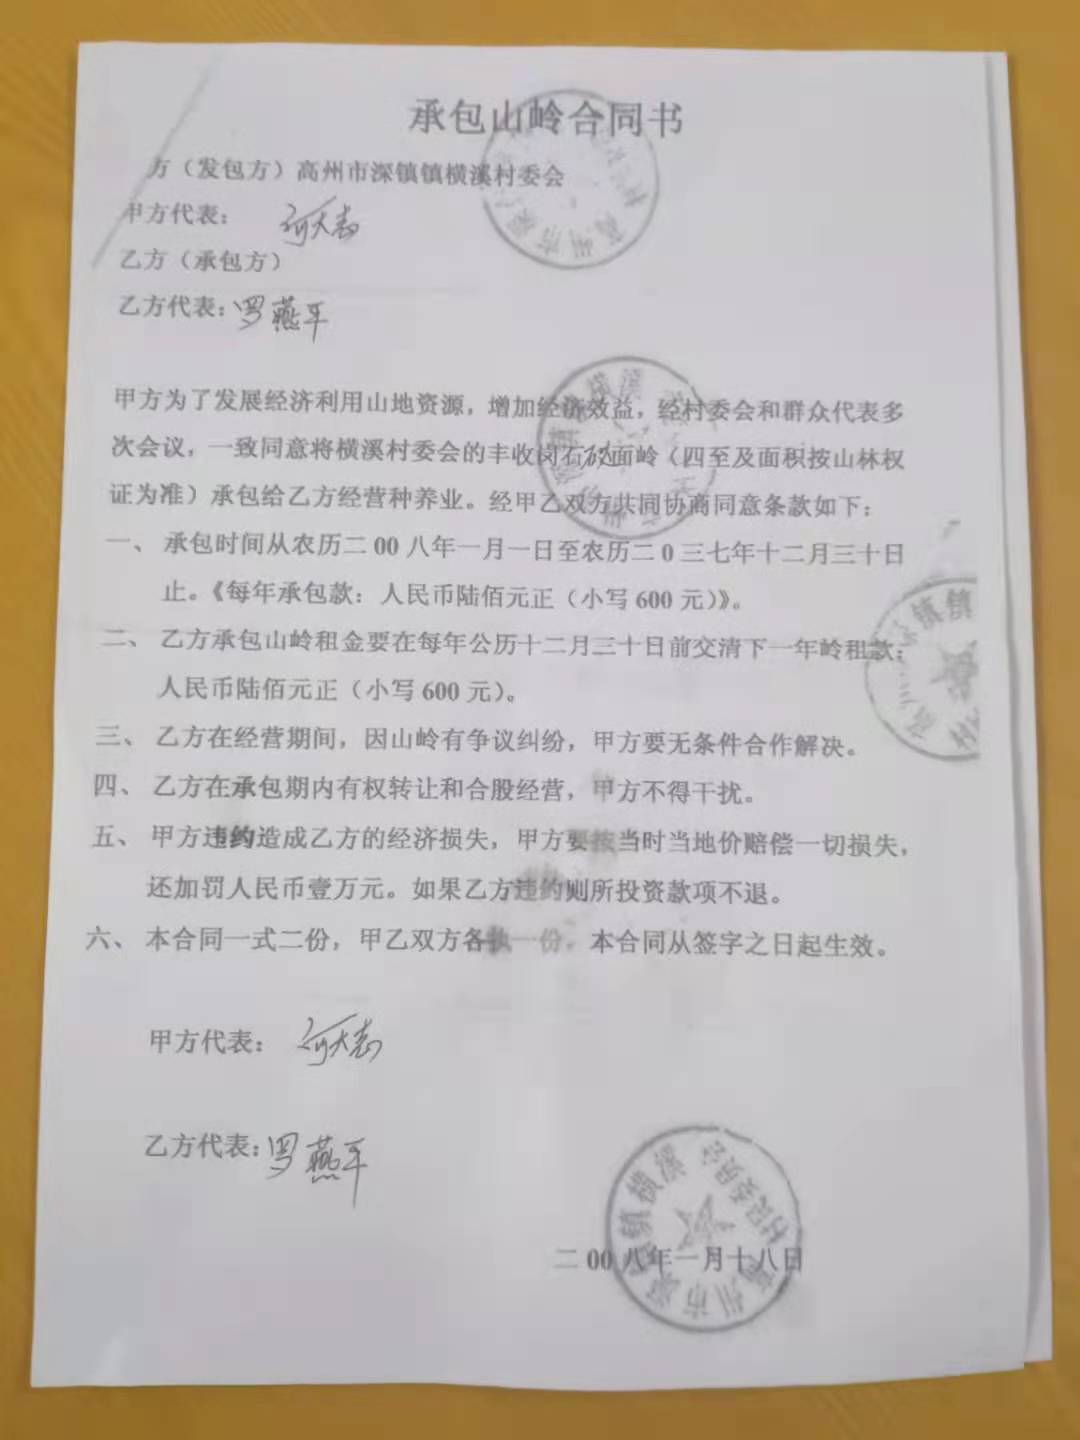 承包山岭合同书
方（发包方）高州市深镇镇横溪村委会
甲方代表：
乙方（承包方）
乙方代表：罗燕平
甲方为了发展经济利用山地资源，增加经济效益，经村委会和群众代表多
次会议，一致同意将横溪村委会的丰收岗石砚面岭（四至及面积按山林权
证为准）承包给乙方经营种养业。经甲乙双方共同协商同意条款如下：
一、承包时间从农历二00八年一月一日至农历二0三七年十二月三十日
止。《每年承包款：人民币陆佰元正（小写600元）》。
二、乙方承包山岭租金要在每年公历十二月三十日前交清下一年岭租款：
人民币陆佰元正（小写600元）。
三、乙方在经营期间，因山岭有争议纠纷，甲方要无条件合作解决。
四、乙方在承包期内有权转让和合股经营，甲方不得干扰。
五、甲方违约造成乙方的经济损失，甲方要按当时当地价赔偿一切损失，
还加罚人民币壹万元。如果乙方违约则所投资款项不退。
六、本合同一式二份，甲乙双方各执一份，本合同从签字之日起生效。
甲方代表：
乙方代表：罗燕平
高州市深镇镇横溪村民委员会
二00八年一月十八日